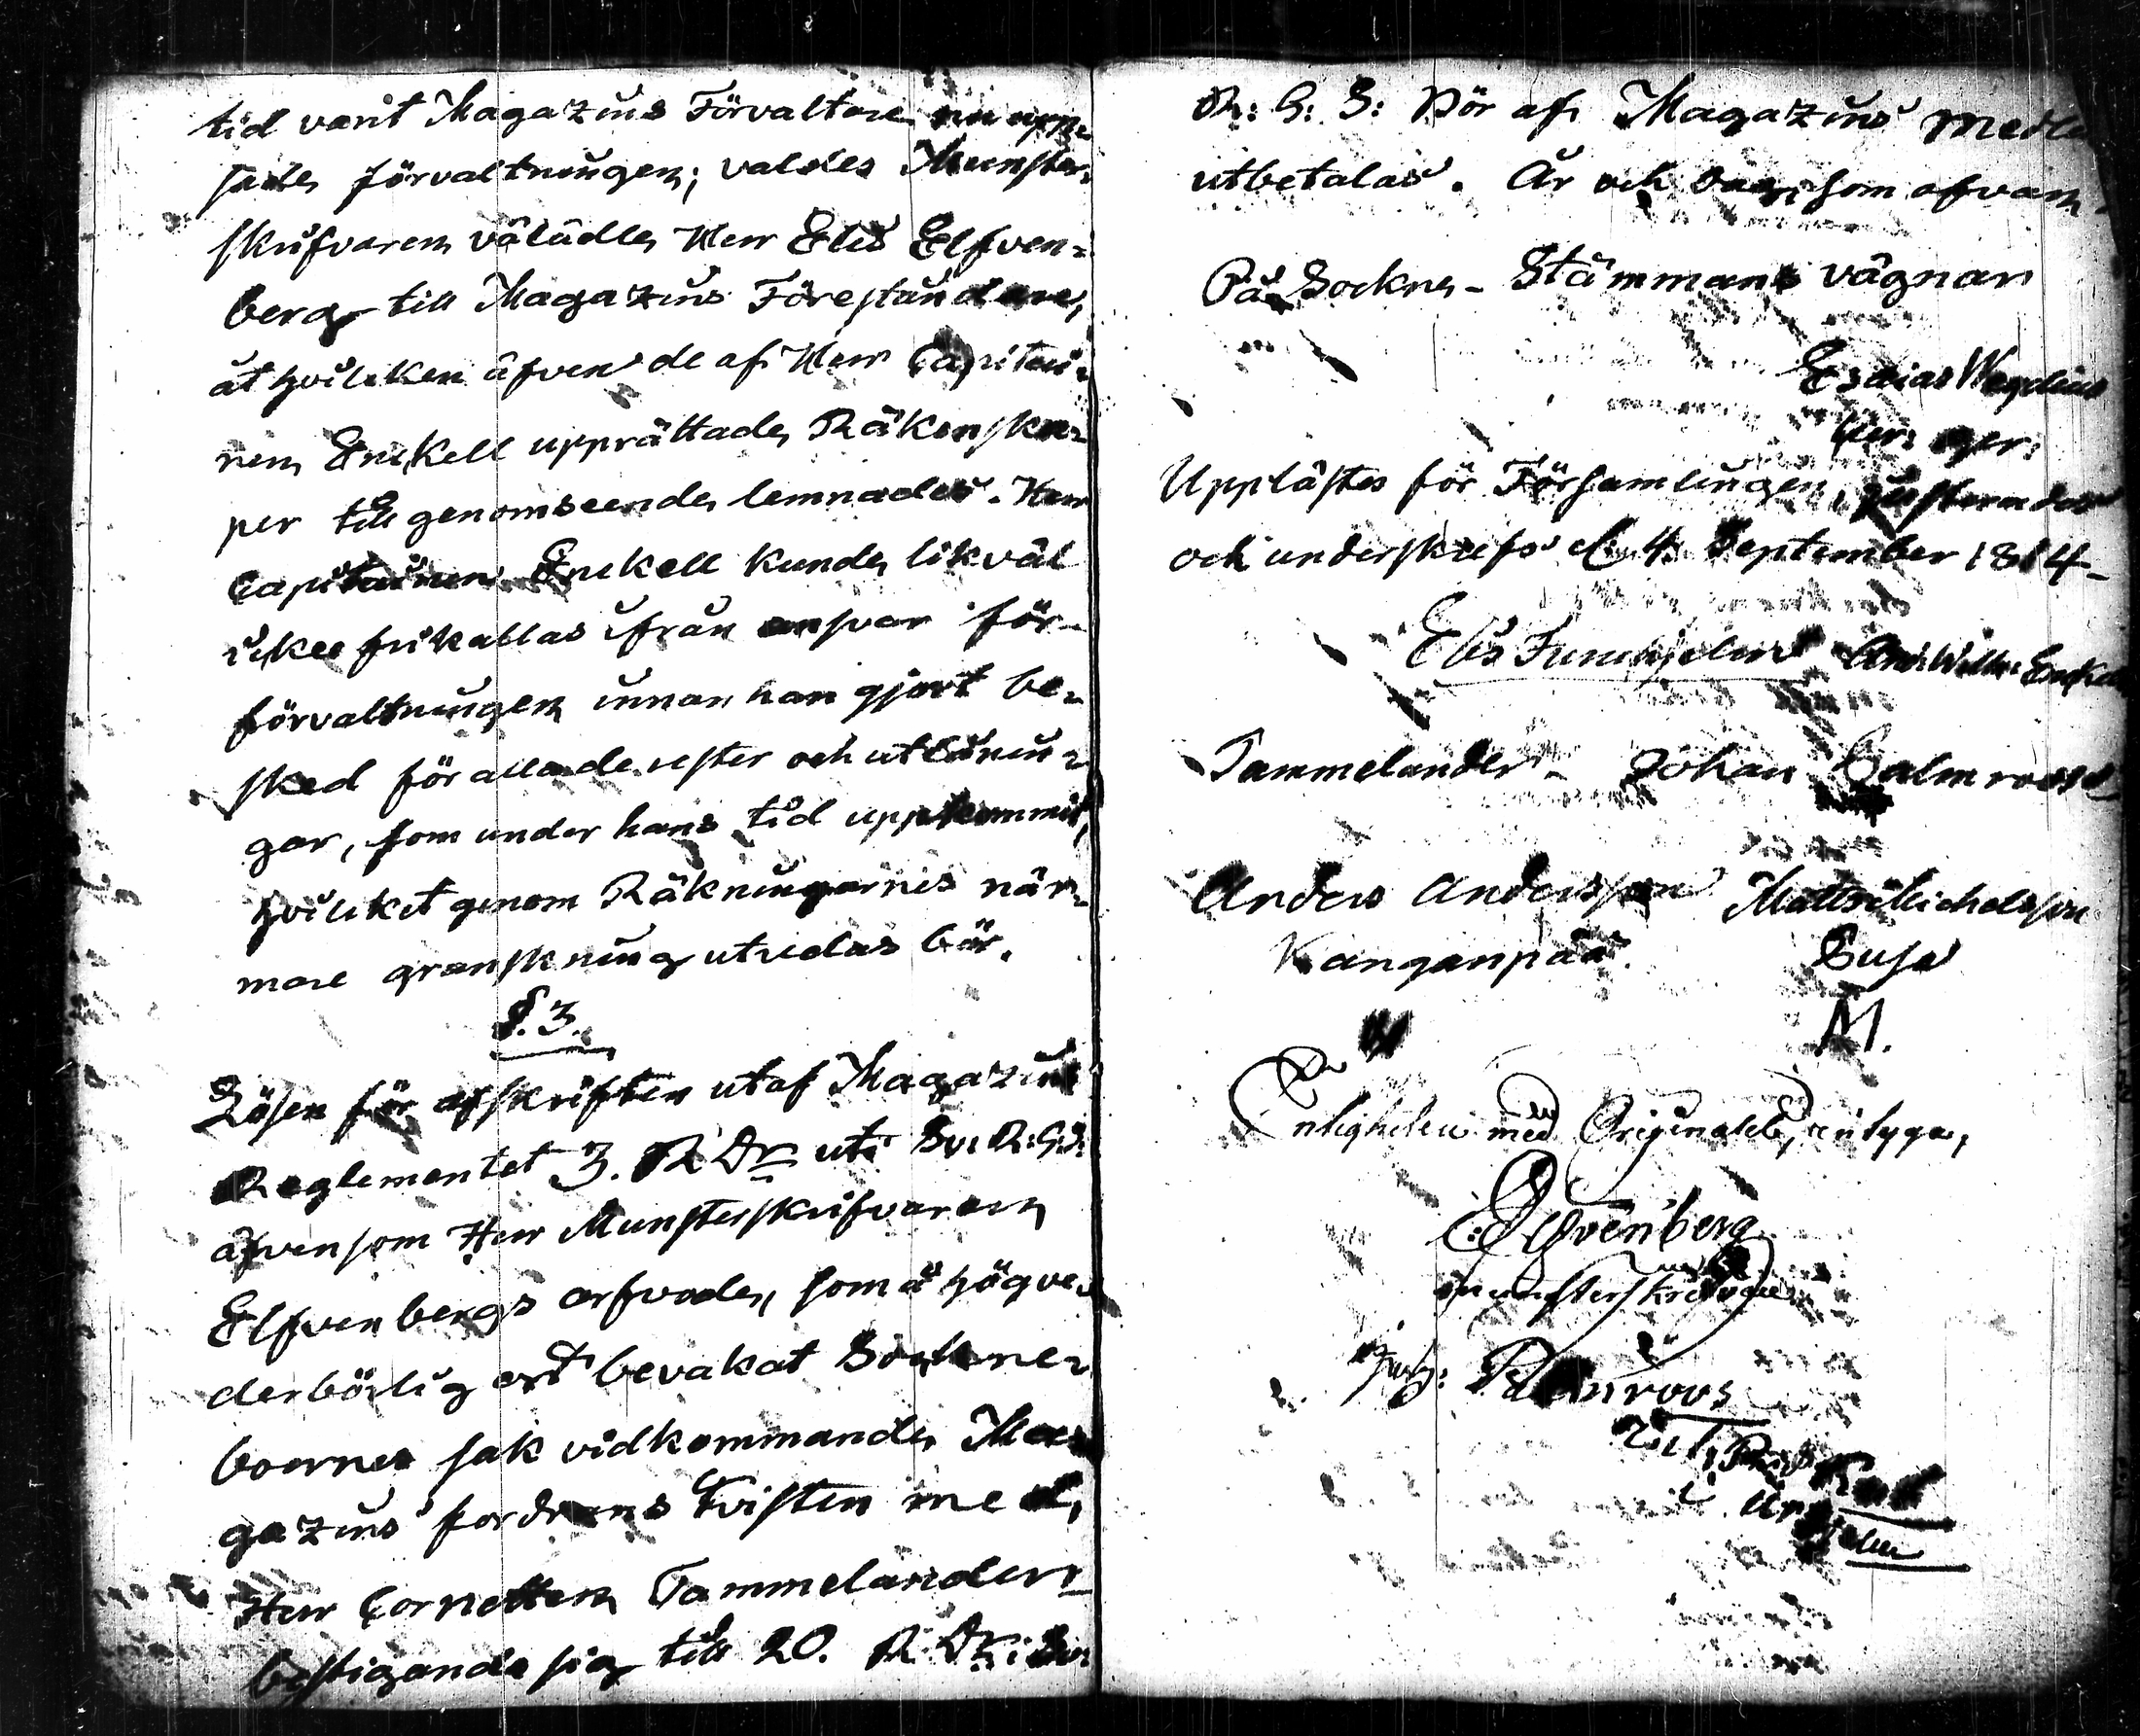 tid varit Magazins Förvaltare nu upp-
sade förvaltningen; valdes Munster-
skrifvaren välädle Herr Elis Elfven-
berg till Magazins Föreståndare,
åt hvilcken äfven de af Herr Capitai-
nen Enckell upprättade Räkenska-
per till genomseende lemnades. Herr
Capitainen Enckell kunde likväl
icke frikallas ifrån ansvar för
förvaltningen innan han gjort be-
sked för alla de rester och utlånin-
gar, som under hans tid uppkommit,
hvilcket genom Räkningarnes när-
mare granskning utredas bör.
§. 3.
Lösen för afskriften utaf Magazins
Reglementet 3. R Dr uti Sv: R: G: S:
äfvensom Herr Munsterskrifvaren
Elfvenbergs arfvode, som å högve-
derbörlig ort bevakat Sockne-
boernes sak vidkommande Ma-
gazins fordrans tvisten med,
Herr Cornetten Tammelander
bestigande sig till 20. R Dr: Sv:
R: G: S: Bör af Magazins medel
utbetalas. År och dag, som ofvan.
På Sockne-Stämmans vägnar
Esaias Wegelius
Upplästes för Församlingen, justerades
och underskrefs d. 4 September 1814-
Elis Tammelander
Johan Palmroos
Anders Andersson Matts Michelsson
Kanganpää. Susa
M.
Enligheten med Originalet, intyga,
E: Elfvenberg
munsterskrifvare
Joh: Palmroos